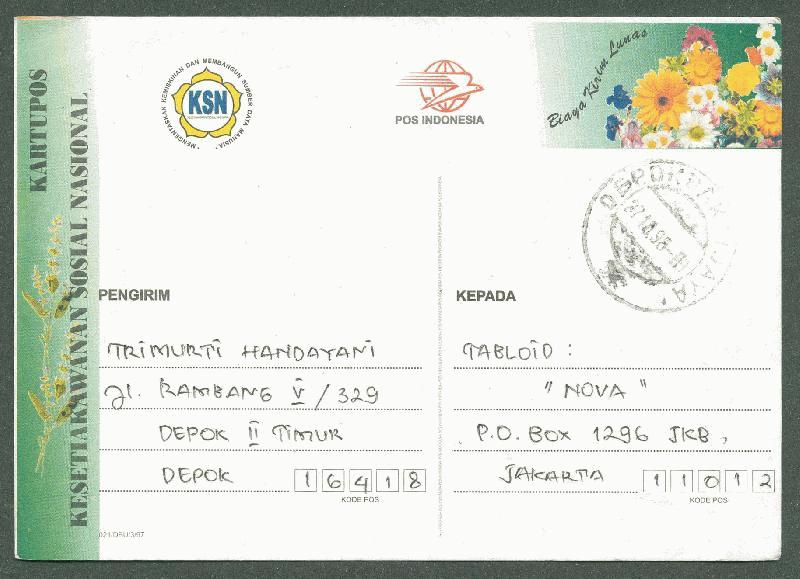 KARTUPOS
KESETIAKAWANAN SOSIAL NASIONAL
"MENGENTASKAN KEMISKINAN DAN MEMBANGUN SUMBER DAYA MANUSIA"
KSN
POS INDONESIA
Biaya Kirim Lunas
PENGIRIM
TRIMURTI HANDAYANI
Jl. RAMBANG V / 329
DEPOK II TIMUR
DEPOK 16418
KODE POS
KEPADA
TABLOID :
"NOVA"
P.O. BOX 1296 JKB,
JAKARTA 11012
KODE POS
021/DBU/3/97